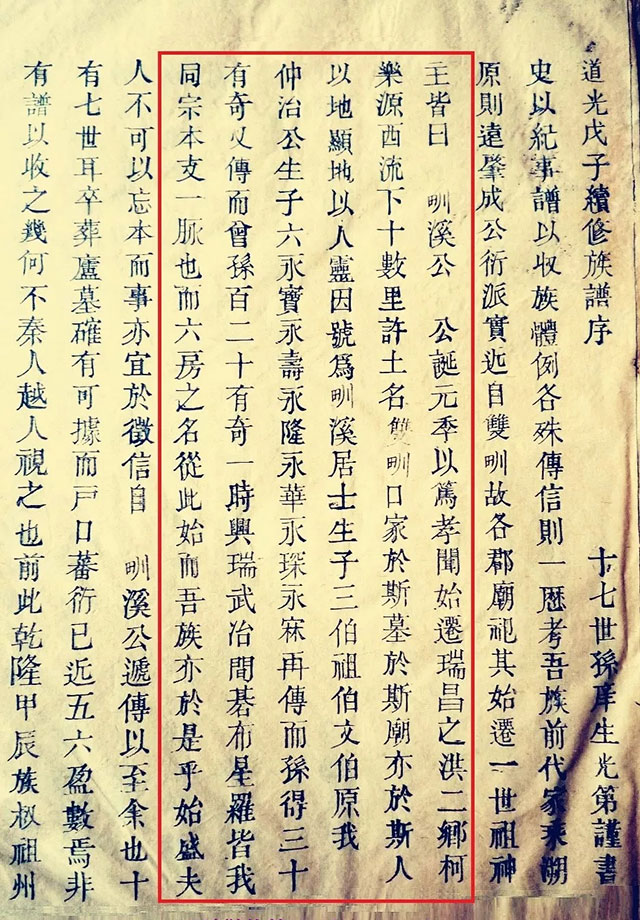 道光戊子續修族譜序
十七世孫庠生光第謹書
史以紀事譜以收族體例各殊傳信則一歷考吾族前代家乘溯
原則遠肇成公衍派實近自雙甽故各郡廟祀其始遷一世祖神
主皆曰 甽溪公 公誕元季以篤孝聞始遷瑞昌之洪二鄉柯
樂源西流下十數里許土名雙甽口家於斯墓於斯廟亦於斯人
以地顯地以人靈因號爲甽溪居士生子三伯祖伯文伯原我
仲治公生子六永寶永壽永隆永華永琛永寀再傳而孫得三十
有奇又傳而曾孫百二十有奇一時興瑞武冶間碁布星羅皆我
同宗本支一脈也而六房之名從此始而吾族亦於是乎始盛夫
人不可以忘本而事亦宜於徵信自 甽溪公遞傳以至余也十
有七世耳卒葬廬墓確有可據而戸口蕃衍已近五六盈數焉非
有譜以收之幾何不秦人越人視之也前此乾隆甲辰族叔祖州